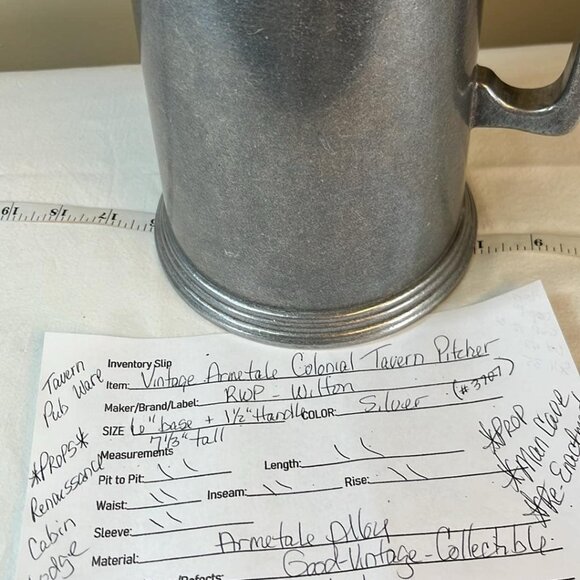 19 18 17
9
Inventory Slip
Item: Vintage Armetale Colonial Tavern Pitcher
Maker/Brand/Label: RWP - Wilton (#3907)
SIZE 6" base + 1½" Handle COLOR: Silver
7⅓" tall
Measurements
Pit to Pit: \\ Length: \\
Waist: \\ Inseam: \\ Rise: \\
Sleeve: \\
Material: Armetale Alloy
Good-Vintage-Collectible
/Defects:
Tavern
Pub Ware
*PROPS*
Renaissance
Cabin
Lodge
*PROP
*Man Cave
*Re-Enactment